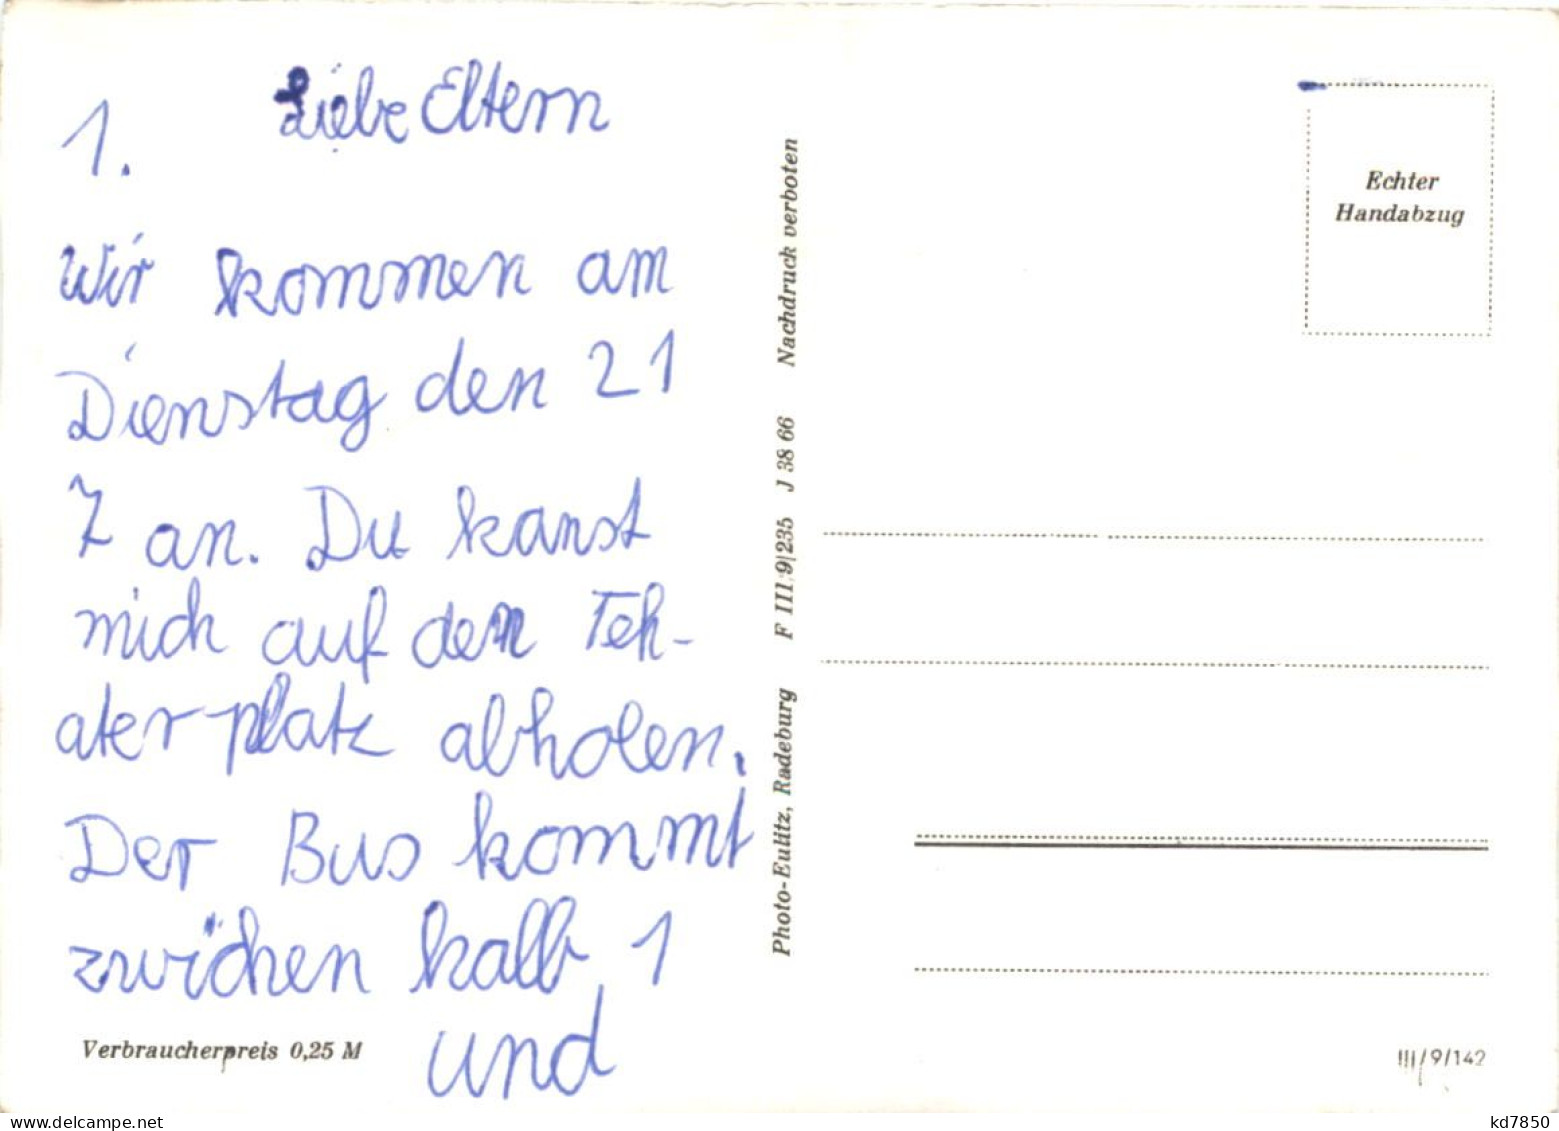 1. Liebe Eltern
Wir kommen am
Dienstag den 21
7 an. Du kanst
mich auf den Teh-
aterplatz abholen.
Der Bus kommt
zwichen halb 1
und
Verbraucherpreis 0,25 M
Photo-Eulitz, Radeburg F III/9/235 J 38 66 Nachdruck verboten
Echter
Handabzug
III/9/142
kd7850